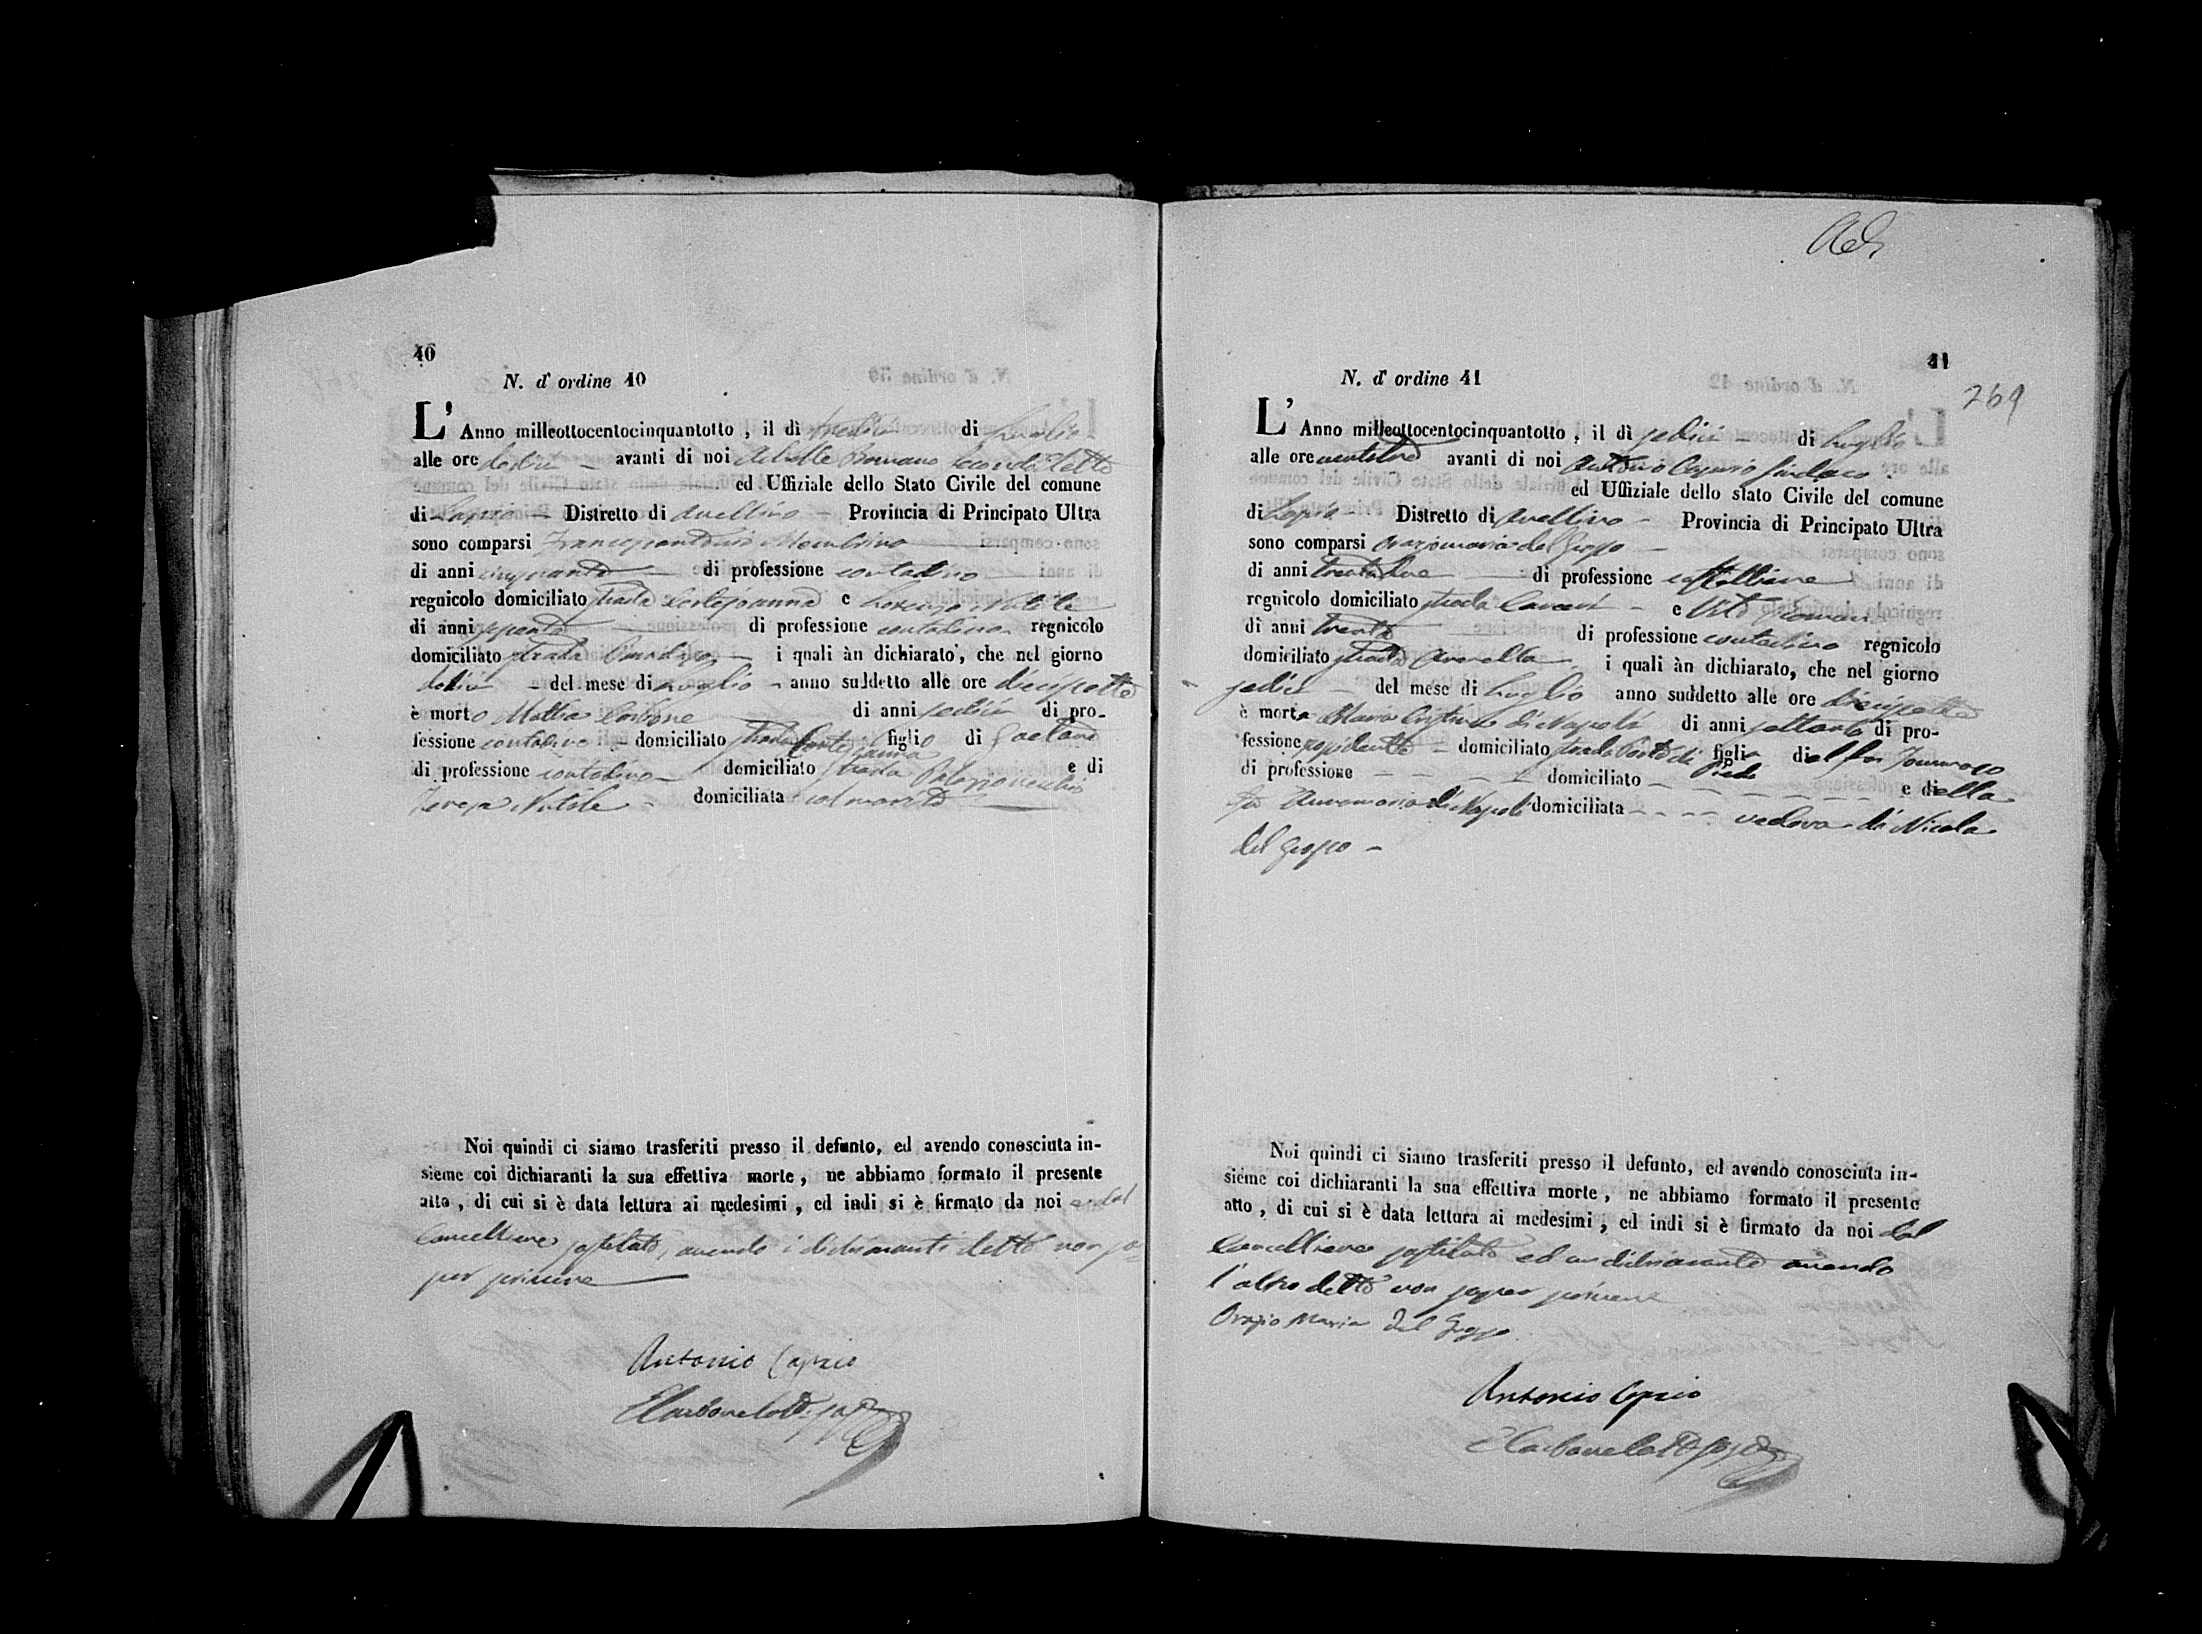 40
N. d' ordine 40
L' Anno milleottocentocinquantotto, il dì tredici di Luglio
alle ore dodici avanti di noi Romano Secondo Eletto
ed Uffiziale dello Stato Civile del comune
di Lapio Distretto di Avellino Provincia di Principato Ultra
sono comparsi Francescantonio Mombrino
di anni cinquanta di professione contadino
regnicolo domiciliato strada e Lorenzo Nutile
di anni di professione contadino regnicolo
domiciliato strada i quali àn dichiarato, che nel giorno
dodici del mese di Luglio anno suddetto alle ore diciassette
è morto Mattia Carbone di anni sedici di pro-
fessione contadino domiciliato strada figlio di Gaetano
di professione contadino domiciliato strada Palazzo vecchio e di
Teresa Nutile domiciliata col marito
Noi quindi ci siamo trasferiti presso il defunto, ed avendo conosciuta in-
sieme coi dichiaranti la sua effettiva morte, ne abbiamo formato il presente
atto, di cui si è data lettura ai medesimi, ed indi si è firmato da noi e dal
Cancelliere sostituto, avendo i dichiaranti detto non sa-
per scrivere
Antonio Caprio
41
269
N. d' ordine 41
L' Anno milleottocentocinquantotto, il dì sedici di Luglio
alle ore ventitre avanti di noi Antonio Caprio Sindaco
ed Uffiziale dello stato Civile del comune
di Lapio Distretto di Avellino Provincia di Principato Ultra
sono comparsi Oraziomaria del Grosso
di anni trentadue di professione
regnicolo domiciliato strada Carceri e Vito Romano
di anni trenta di professione contadino regnicolo
domiciliato strada i quali àn dichiarato, che nel giorno
sedici del mese di Luglio anno suddetto alle ore diciassette
è morta Maria Cristina di Napoli di anni settanta di pro-
fessione possidente domiciliato strada Porta di Piedi figlia del fu Tommaso
di professione domiciliato e della
fu Annamaria di Napoli domiciliata vedova di Nicola
del Grosso
Noi quindi ci siamo trasferiti presso il defunto, ed avendo conosciuta in-
sieme coi dichiaranti la sua effettiva morte, ne abbiamo formato il presente
atto, di cui si è data lettura ai medesimi, ed indi si è firmato da noi dal
Cancelliere sostituto ed un dichiarante avendo
l'altro detto non saper scrivere
Orazio Maria Del Grosso
Antonio Caprio